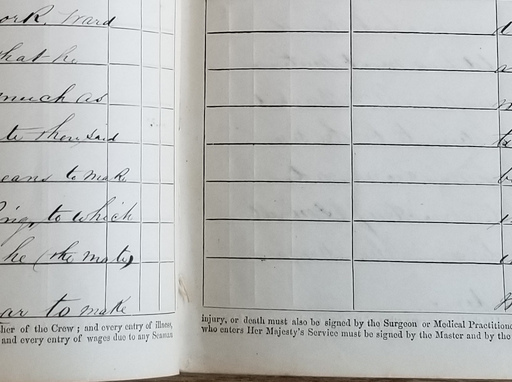 ork. Ward
that he
much as
te then said
eans to make
ing, to which
he (the mate)
ar to make
her of the Crew ; and every entry of illness,
and every entry of wages due to any Seaman
injury, or death must also be signed by the Surgeon or Medical Practitione
who enters Her Majesty's Service must be signed by the Master and by the